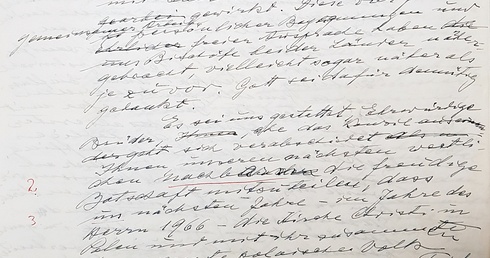 gewirkt. Diese
gemeinsamer persönlicher Begegnungen und
freier Aussprache haben
uns Bischöfe beider Länder näher
gebracht, vielleicht sogar näher als
je zuvor. Gott sei dafür demütig
gedankt.
Es sei uns gestattet, Ehrwürdige
Brüder, ehe das Konzil
sich verabschiedet
Ihnen unseren nächsten westli-
2. chen Nachbarn die freudige
Botschaft mitzuteilen, dass
3 im nächsten Jahre - im Jahre des
Herrn 1966 - die Kirche Christi in
Polen und mit ihr zusammen
polnisches Volk